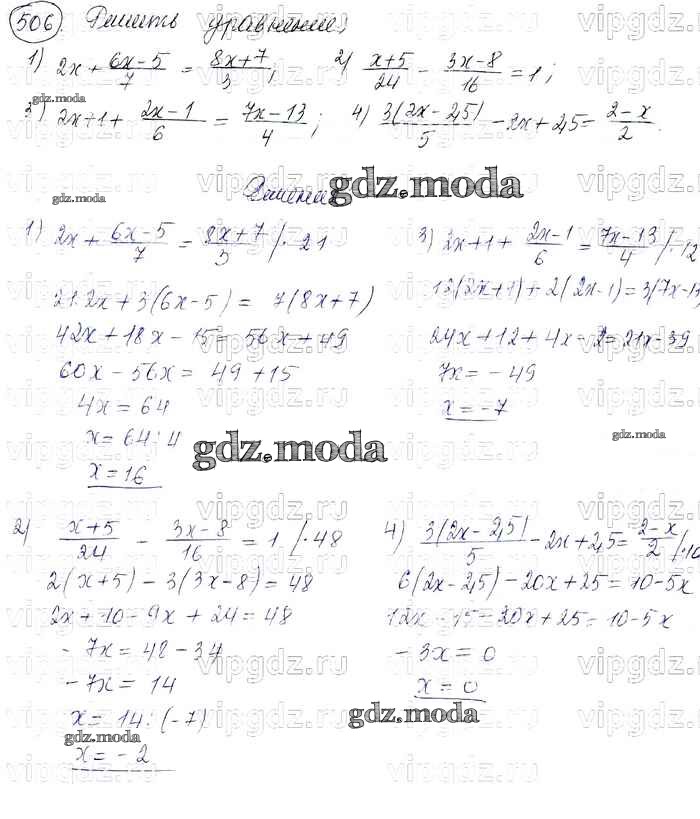 506. Решить уравнение;
1) 2x + (6x-5)/7 = (8x+7)/3; 2) (x+5)/24 - (3x-8)/16 = 1;
gdz.moda
3) 2x+1+ (2x-1)/6 = (7x-13)/4; 4) 3(2x-2,5)/5 - 2x+2,5 = (2-x)/2.
gdz.moda
Решение
gdz.moda
1) 2x + (6x-5)/7 = (8x+7)/3 /·21
21·2x + 3(6x-5) = 7(8x+7)
42x + 18x - 15 = 56x + 49
60x - 56x = 49 + 15
4x = 64
x = 64:4
x = 16
3) 2x+1+ (2x-1)/6 = (7x-13)/4 /·12
12(2x+1)+2(2x-1)=3(7x-13
24x+12+4x-2=21x-39
7x = -49
x = -7
gdz.moda
gdz.moda
2) (x+5)/24 - (3x-8)/16 = 1 /·48
2(x+5) - 3(3x-8) = 48
2x + 10 - 9x + 24 = 48
-7x = 48 - 34
-7x = 14
x = 14:(-7)
gdz.moda
x = -2
4) 3(2x-2,5)/5 - 2x+2,5 = (2-x)/2 /·10
6(2x-2,5) - 20x + 25 = 10-5x
12x - 15 - 20x + 25 = 10-5x
-3x = 0
x = 0
gdz.moda
vipgdz.ru